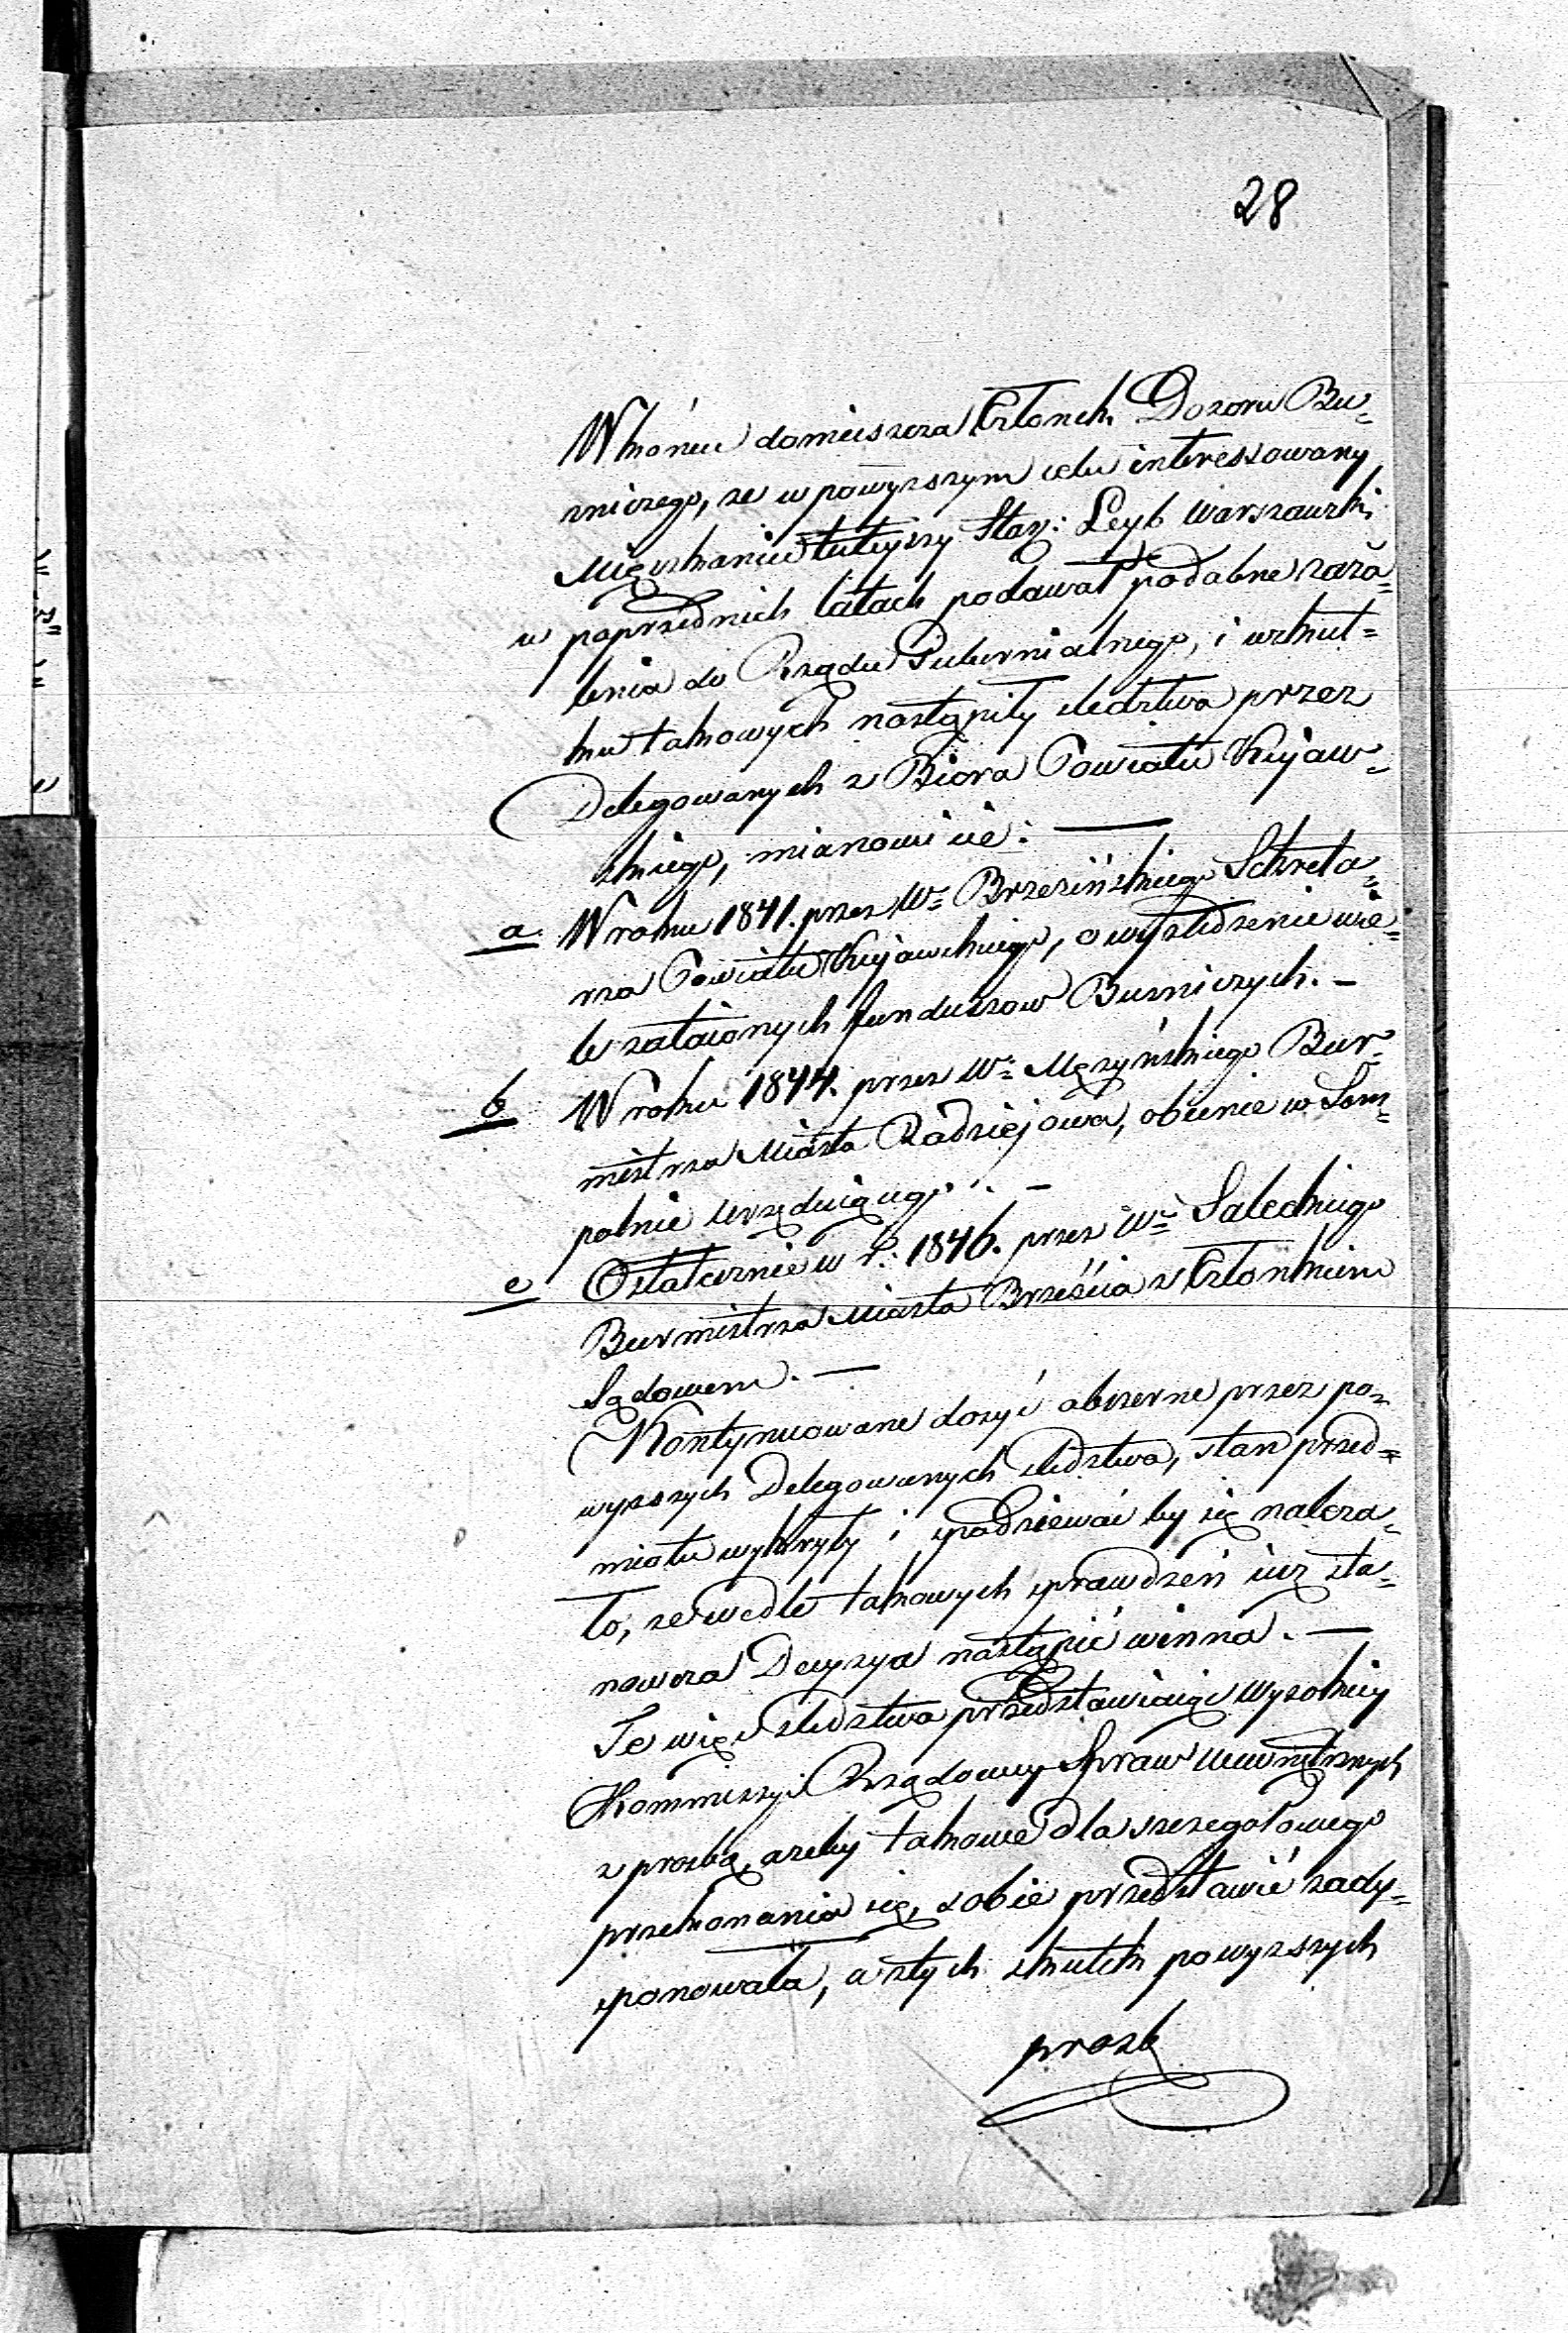 28
W końcu domieszcza Członek Dozoru Bu=
zniczego, że w powyższym celu interessowany
Mięszkaniec tutejszy Staz: Leyb Warszawski
w poprzednich latach podawał podobne zaża=
lenia do Rządu Gubernialnego, i wskut=
ku takowych nastąpiły śledztwa przez
Delegowanych z Biora Powiatu Kujaw=
skiego, mianowicie: —
a. W roku 1841. przez W= Brzezińskiego Sekreta=
rza Powiatu Kujawskiego, o wyśledzenie wie=
le zataionych funduszow Bużniczych. –
b W roku 1844. przez W: Męzyńskiego Bur=
mistrza Miasta Radziejowa, obecnie w Som=
polnie urzęduiącego. –
c Ostatecznie w r: 1846. przez W= Saleckiego
Burmistrza Miasta Brześcia z Członkiem
Sądowem. —
Kontynuowane dosyć obszerne przez po=
wyższych Delegowanych śledztwa, stan przed=
miotu wykryty i spodziewać by się należa=
ło, że wedle takowych sprawdzeń iuż sta=
nowcza Decyzya nastąpić winna. —
Te więc śledztwa przedstawiaiąc Wysokiey
Kommissyi Rządowey Spraw Wewnętrznych
z prozbą, ażeby takowe dla szczegołowego
przekonania się, sobie przedstawić zady=
sponowała, a z tych skutek powyższych
prozb